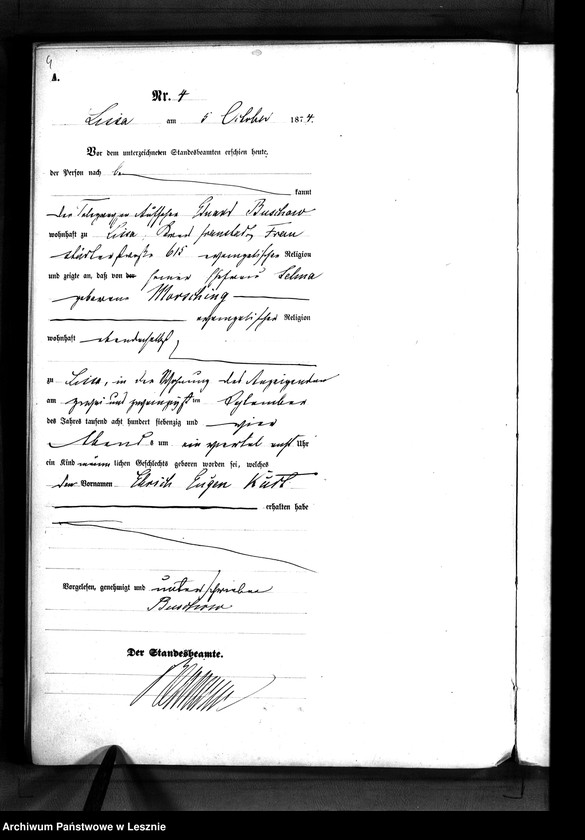 A.
Nr. 4
Lissa am 5 October 1874.
Vor dem unterzeichneten Standesbeamten erschien heute,
der Person nach be
kannt
der Eduard Buschow
wohnhaft zu Lissa, Kreis Fraustadt,
straße 615 evangelischer Religion
und zeigte an, daß von der seiner Ehefrau Selma
geborene Morsching
evangelischer Religion
wohnhaft ebendaselbst
zu Lissa, in der Wohnung des Anzeigenden
am zwei und zwanzigsten September
des Jahres tausend acht hundert siebenzig und vier
Abends um ein viertel acht Uhr
ein Kind männlichen Geschlechts geboren worden sei, welches
den Vornamen Eugen Kurt
erhalten habe
Vorgelesen, genehmigt und unterschrieben
Buschow
Der Standesbeamte.
Archiwum Państwowe w Lesznie